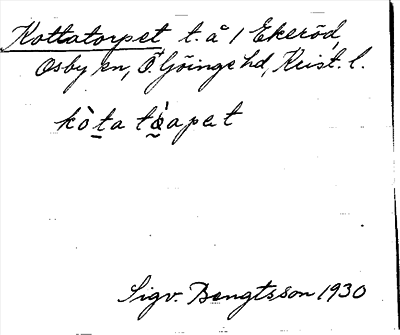 Kottatorpet t. å 1 Ekeröd,
Osby sn, Ö. Göinge hd, Krist. l.
kòta tǫ̀apet
Sigv. Bengtsson 1930